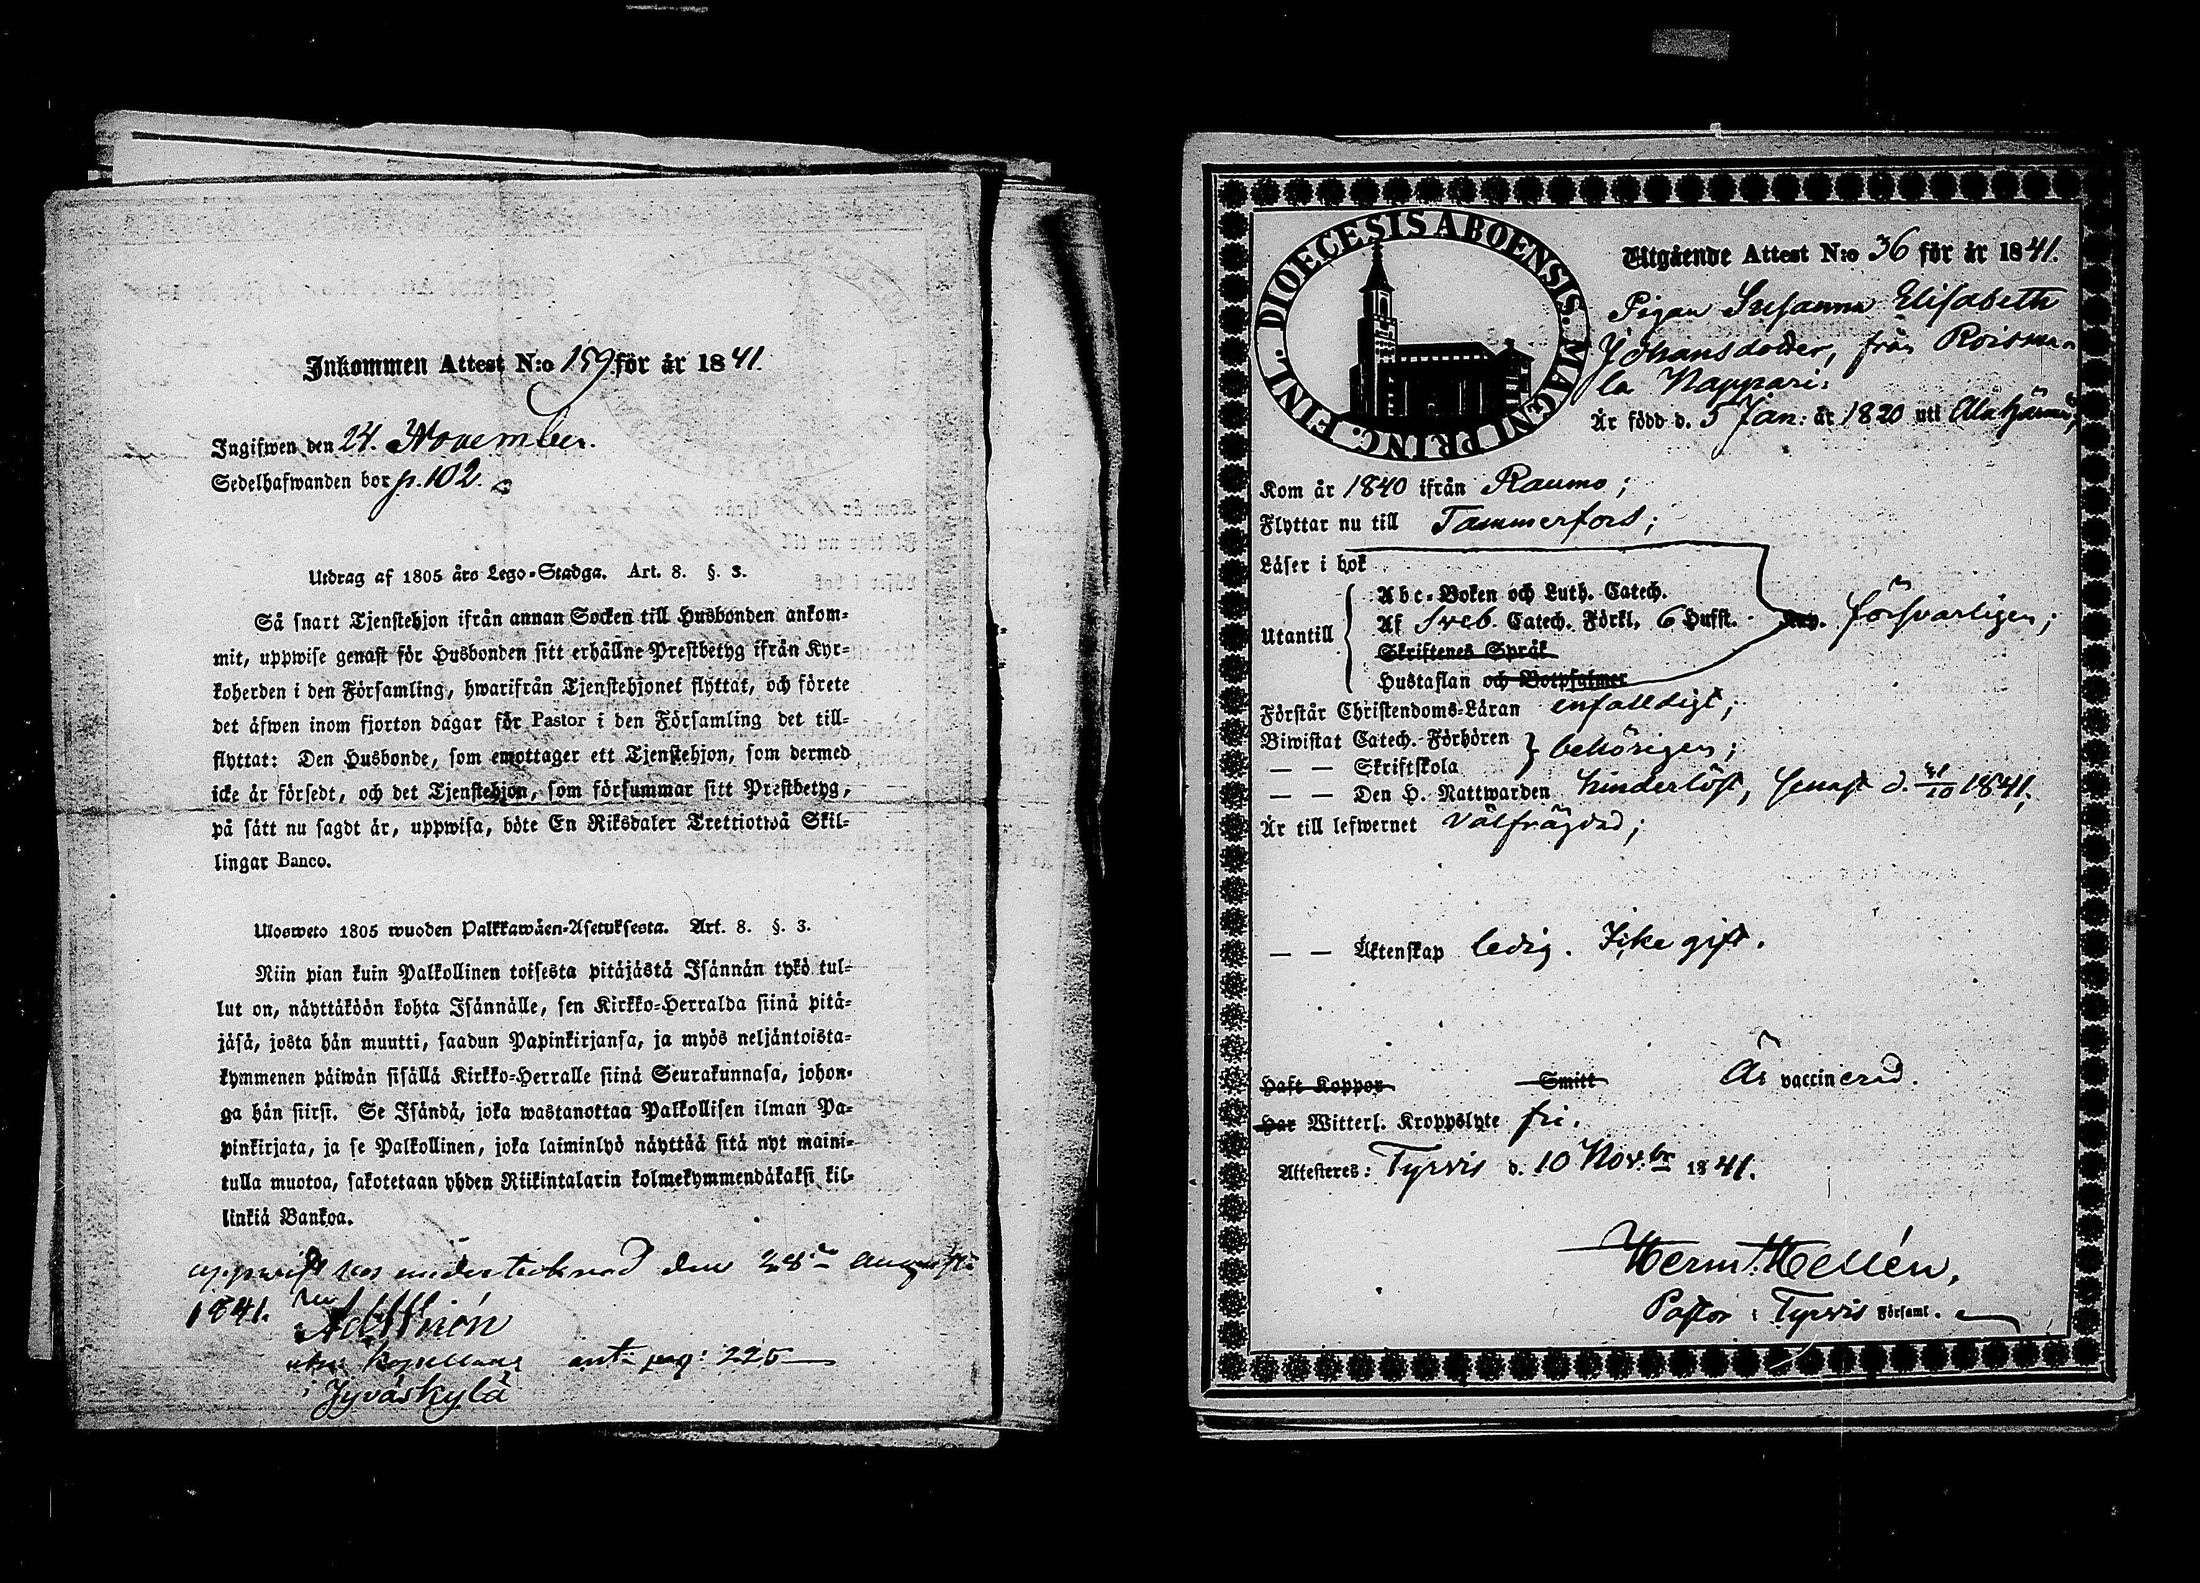 Inkommen Attest N:o 159 för år 1841.
Ingifwen den 24. November.
Sedelhafwanden bor p. 102.
Utdrag af 1805 års Lego-Stadga. Art. 8. §. 3.
Så snart Tjenstehjon ifrån annan Socken till Husbonden ankom-
mit, uppwise genast för Husbonden sitt erhållne Prestbetyg ifrån Kyr-
koherden i den Församling, hwarifrån Tjenstehjonet flyttat, och förete
det äfwen inom fjorton dagar för Pastor i den Församling det till-
flyttat: Den Husbonde, som emottager ett Tjenstehjon, som dermed
icke är försedt, och det Tjenstehjon, som försummar sitt Prestbetyg,
på sätt nu sagdt är, uppwisa, böte En Riksdaler Trettiotwå Skil-
lingar Banco.
Ulosweto 1805 wuoden Palkkawäen-Asetuksesta. Art. 8. §. 3.
Niin pian kuin Palkollinen toisesta pitäjästä Isännän tykö tul-
lut on, näyttäköön kohta Isännälle, sen Kirkko-Herralda siinä pitä-
jäsä, josta hän muutti, saadun Papinkirjansa, ja myös neljäntoista-
kymmenen päiwän sisällä Kirkko-Herralle siinä Seurakunnasa, johon-
ga hän siirsi. Se Isändä, joka wastanottaa Palkollisen ilman Pa-
pinkirjata, ja se Palkollinen, joka laiminlyö näyttää sitä nyt maini-
tulla muotoa, sakotetaan yhden Riikintalarin kolmekymmendäkaksi kil-
linkiä Bankoa.
uppwist hos undertecknad den 28de Augusti
1841.
pag: 225
i Jyväskylä
DIOECESIS ABOENSIS. MAGNI PRINC. FINL.
Utgående Attest N:o 36 för år 1841.
Pigan Susanna Elisabeth
Johansdotter, från Roisma-
la Nappari;
Är född d. 5 Jan: år 1820 uti Ala Härmä;
Kom år 1840 ifrån Raumo;
Flyttar nu till Tammerfors;
Läser i bok
Abc-Boken och Luth. Catech.
Utantill Af Sveb. Catech. Förkl. 6 Hufst. försvarligen;
Skriftenes Språk
Hustaflan och Botpsalmer
Förstår Christendoms-Läran enfaldigt;
Biwistat Catech. Förhören } behörigen;
— — Skriftskola
— — Den H. Nattwarden hinderlöst, senast d. 31/10 1841;
Är till lefwernet välfrägdad;
— — Äktenskap ledig. Icke gift.
Haft Koppor Smitt Är vaccinerad.
Har Witterl. Kroppslyte fri.
Attesteres: Tyrvis d. 10 Nov:br 1841.
Herm. Hellén,
Pastor i Tyrvis Församl.